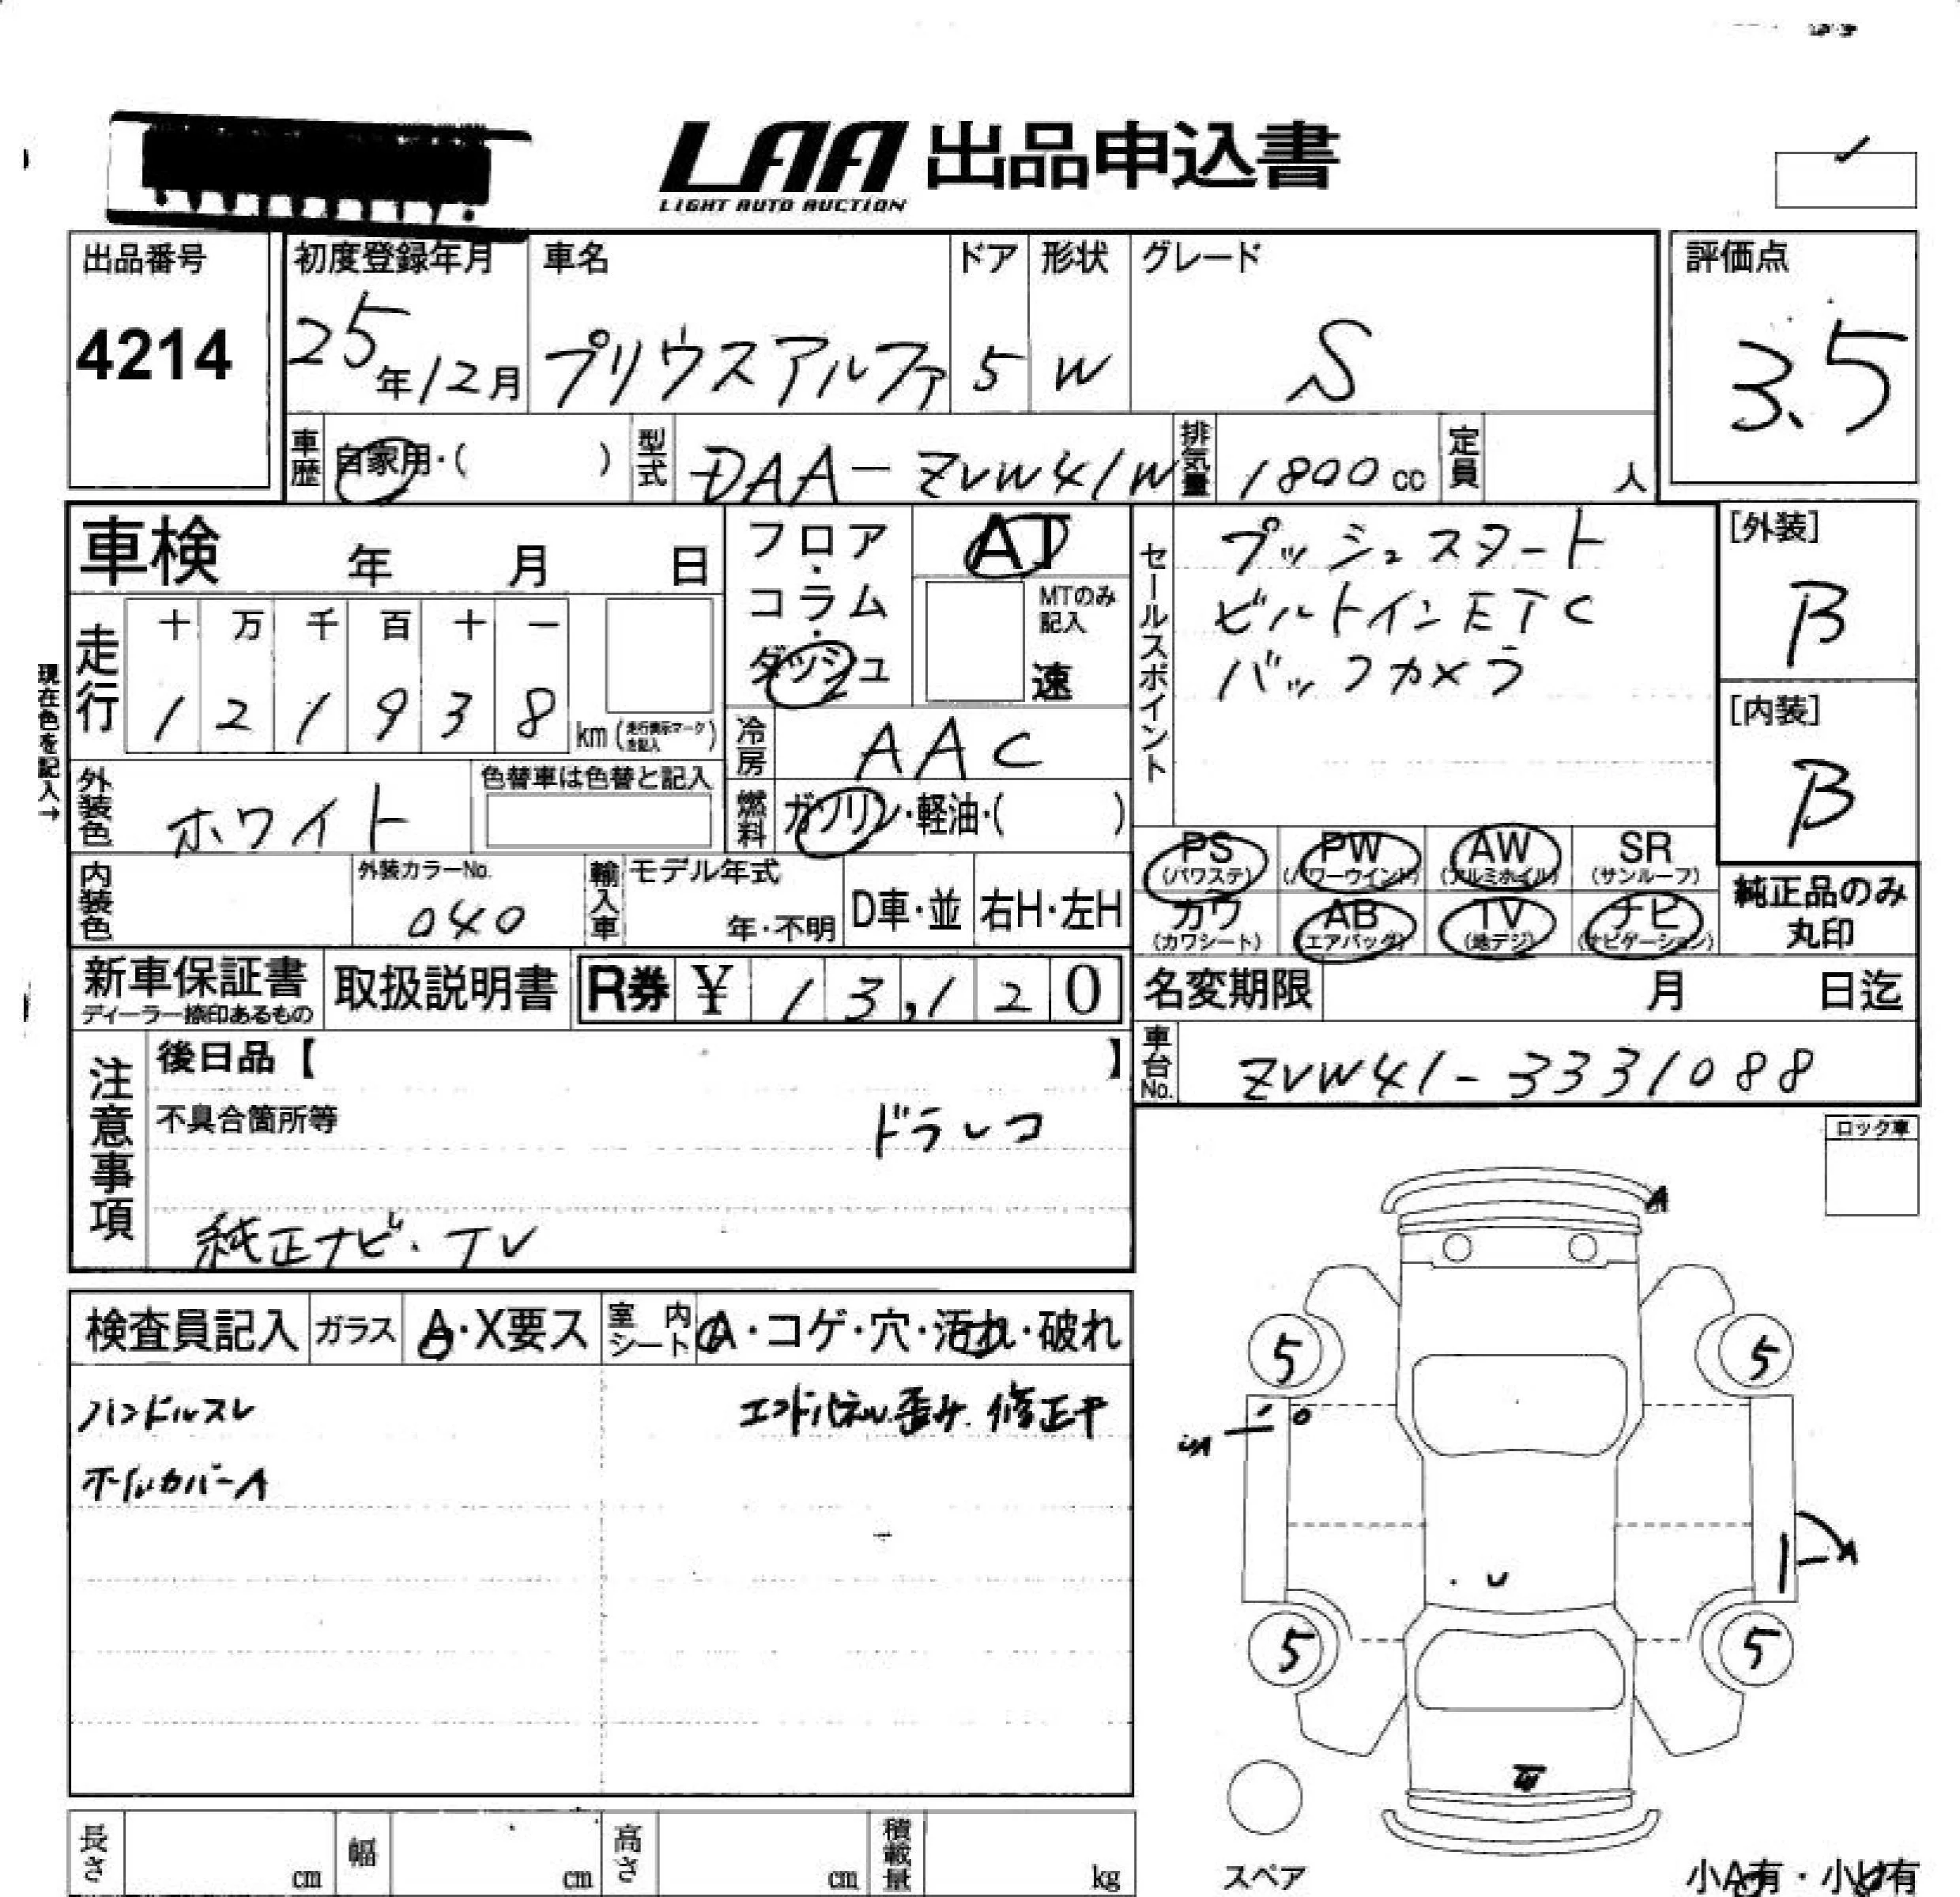 LAA 出品申込書
LIGHT AUTO AUCTION
出品番号
4214
初度登録年月
25年12月
車名
プリウスアルファ
ドア
5
形状
W
グレード
S
評価点
3.5
車歴 自家用・( )
型式 DAA-ZVW41W
排気量 1800cc
定員 人
車検 年 月 日
走行
十 万 千 百 十 一
1 2 1 9 3 8 km (走行表示マークを記入)
現在色を記入→
外装色 ホワイト
色替車は色替と記入
内装色
外装カラーNo.
040
フロア・コラム・ダッシュ
AT
MTのみ記入
速
冷房 AAC
燃料 ガソリン・軽油・( )
輸入車 モデル年式
年・不明
D車・並
右H・左H
セールスポイント
プッシュスタート
ビルトインETC
バックカメラ
[外装]
B
[内装]
B
PS (パワステ)
PW (パワーウインド)
AW (アルミホイル)
SR (サンルーフ)
カワ (カワシート)
AB (エアバッグ)
TV (地デジ)
ナビ (ナビゲーション)
純正品のみ
丸印
新車保証書
ディーラー捺印あるもの
取扱説明書
R券 ¥ 13,120
名変期限 月 日迄
車台No. ZVW41-3331088
注意事項
後日品【 】
不具合箇所等
ドラレコ
純正ナビ・TV
ロック車
検査員記入
ガラス A・X要ス
室内シート A・コゲ・穴・汚れ・破れ
ハンドルスレ
エンドパネル歪み・修正キ
ホイルカバーA
A
5
5
A
U
5
5
スペア
小A有・小U有
長さ cm
幅 cm
高さ cm
積載量 kg